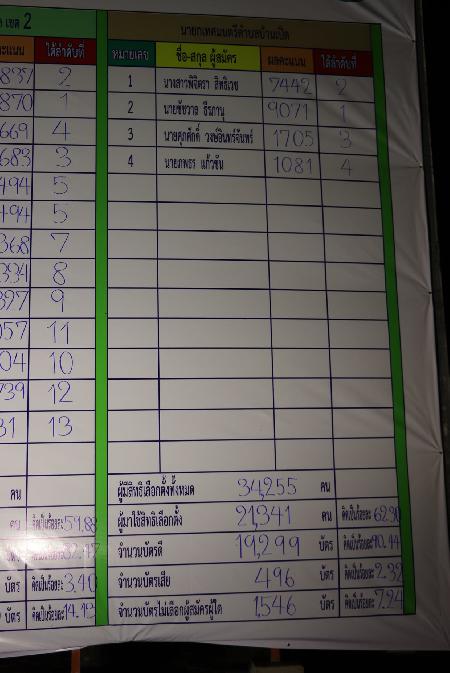 ล เขต 2
คะแนน ได้ลำดับที่
837 2
870 1
669 4
683 3
494 5
494 5
368 7
394 8
397 9
057 11
04 10
739 12
31 13
คน
คน คิดเป็นร้อยละ 59.88
บัตร คิดเป็นร้อยละ
บัตร คิดเป็นร้อยละ 3.40
บัตร คิดเป็นร้อยละ 14.13
นายกเทศมนตรีตำบลบ้านเป็ด
หมายเลข ชื่อ-สกุล ผู้สมัคร ผลคะแนน ได้ลำดับที่
1 นางสาวพิจิตรา สิทธิเวช 7442 2
2 นายชัชวาล ธีรภานุ 9071 1
3 นายศุภศักดิ์ วงษ์อินทร์จันทร์ 1705 3
4 นายภพธร แก้วชิน 1081 4
ผู้มีสิทธิเลือกตั้งทั้งหมด 34,255 คน
ผู้มาใช้สิทธิเลือกตั้ง 21,341 คน คิดเป็นร้อยละ 62.30
จำนวนบัตรดี 19,299 บัตร คิดเป็นร้อยละ 90.44
จำนวนบัตรเสีย 496 บัตร คิดเป็นร้อยละ 2.32
จำนวนบัตรไม่เลือกผู้สมัครผู้ใด 1,546 บัตร คิดเป็นร้อยละ 7.24